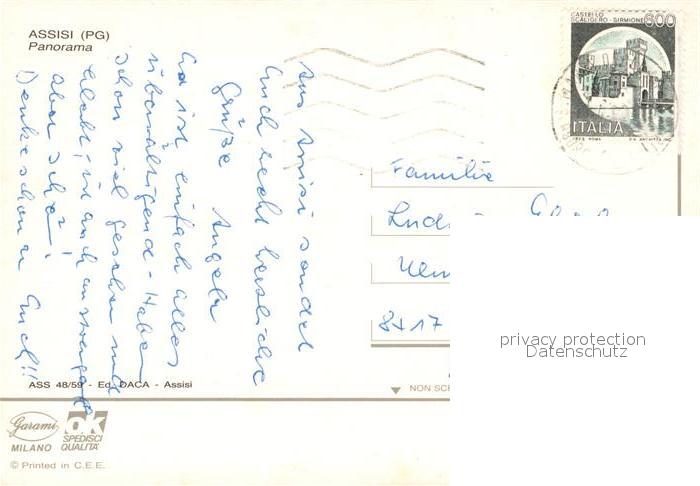 ASSISI (PG)
Panorama
CASTELLO
SCALIGERO - SIRMIONE 600
ITALIA
Aus Assisi sendet
Euch recht herzliche
Grüße Angela
Es ist einfach alles
überwältigend - Haben
schon viel gesehen und
erlebt, ist auch anstrengend
aber schön!
Denke schon an Euch!!
Familie
8417
privacy protection
Datenschutz
NON SC
ASS 48/59 - Ed. DACA - Assisi
Garami
MILANO
OK
SPEDISCI
QUALITÀ
© Printed in C.E.E.